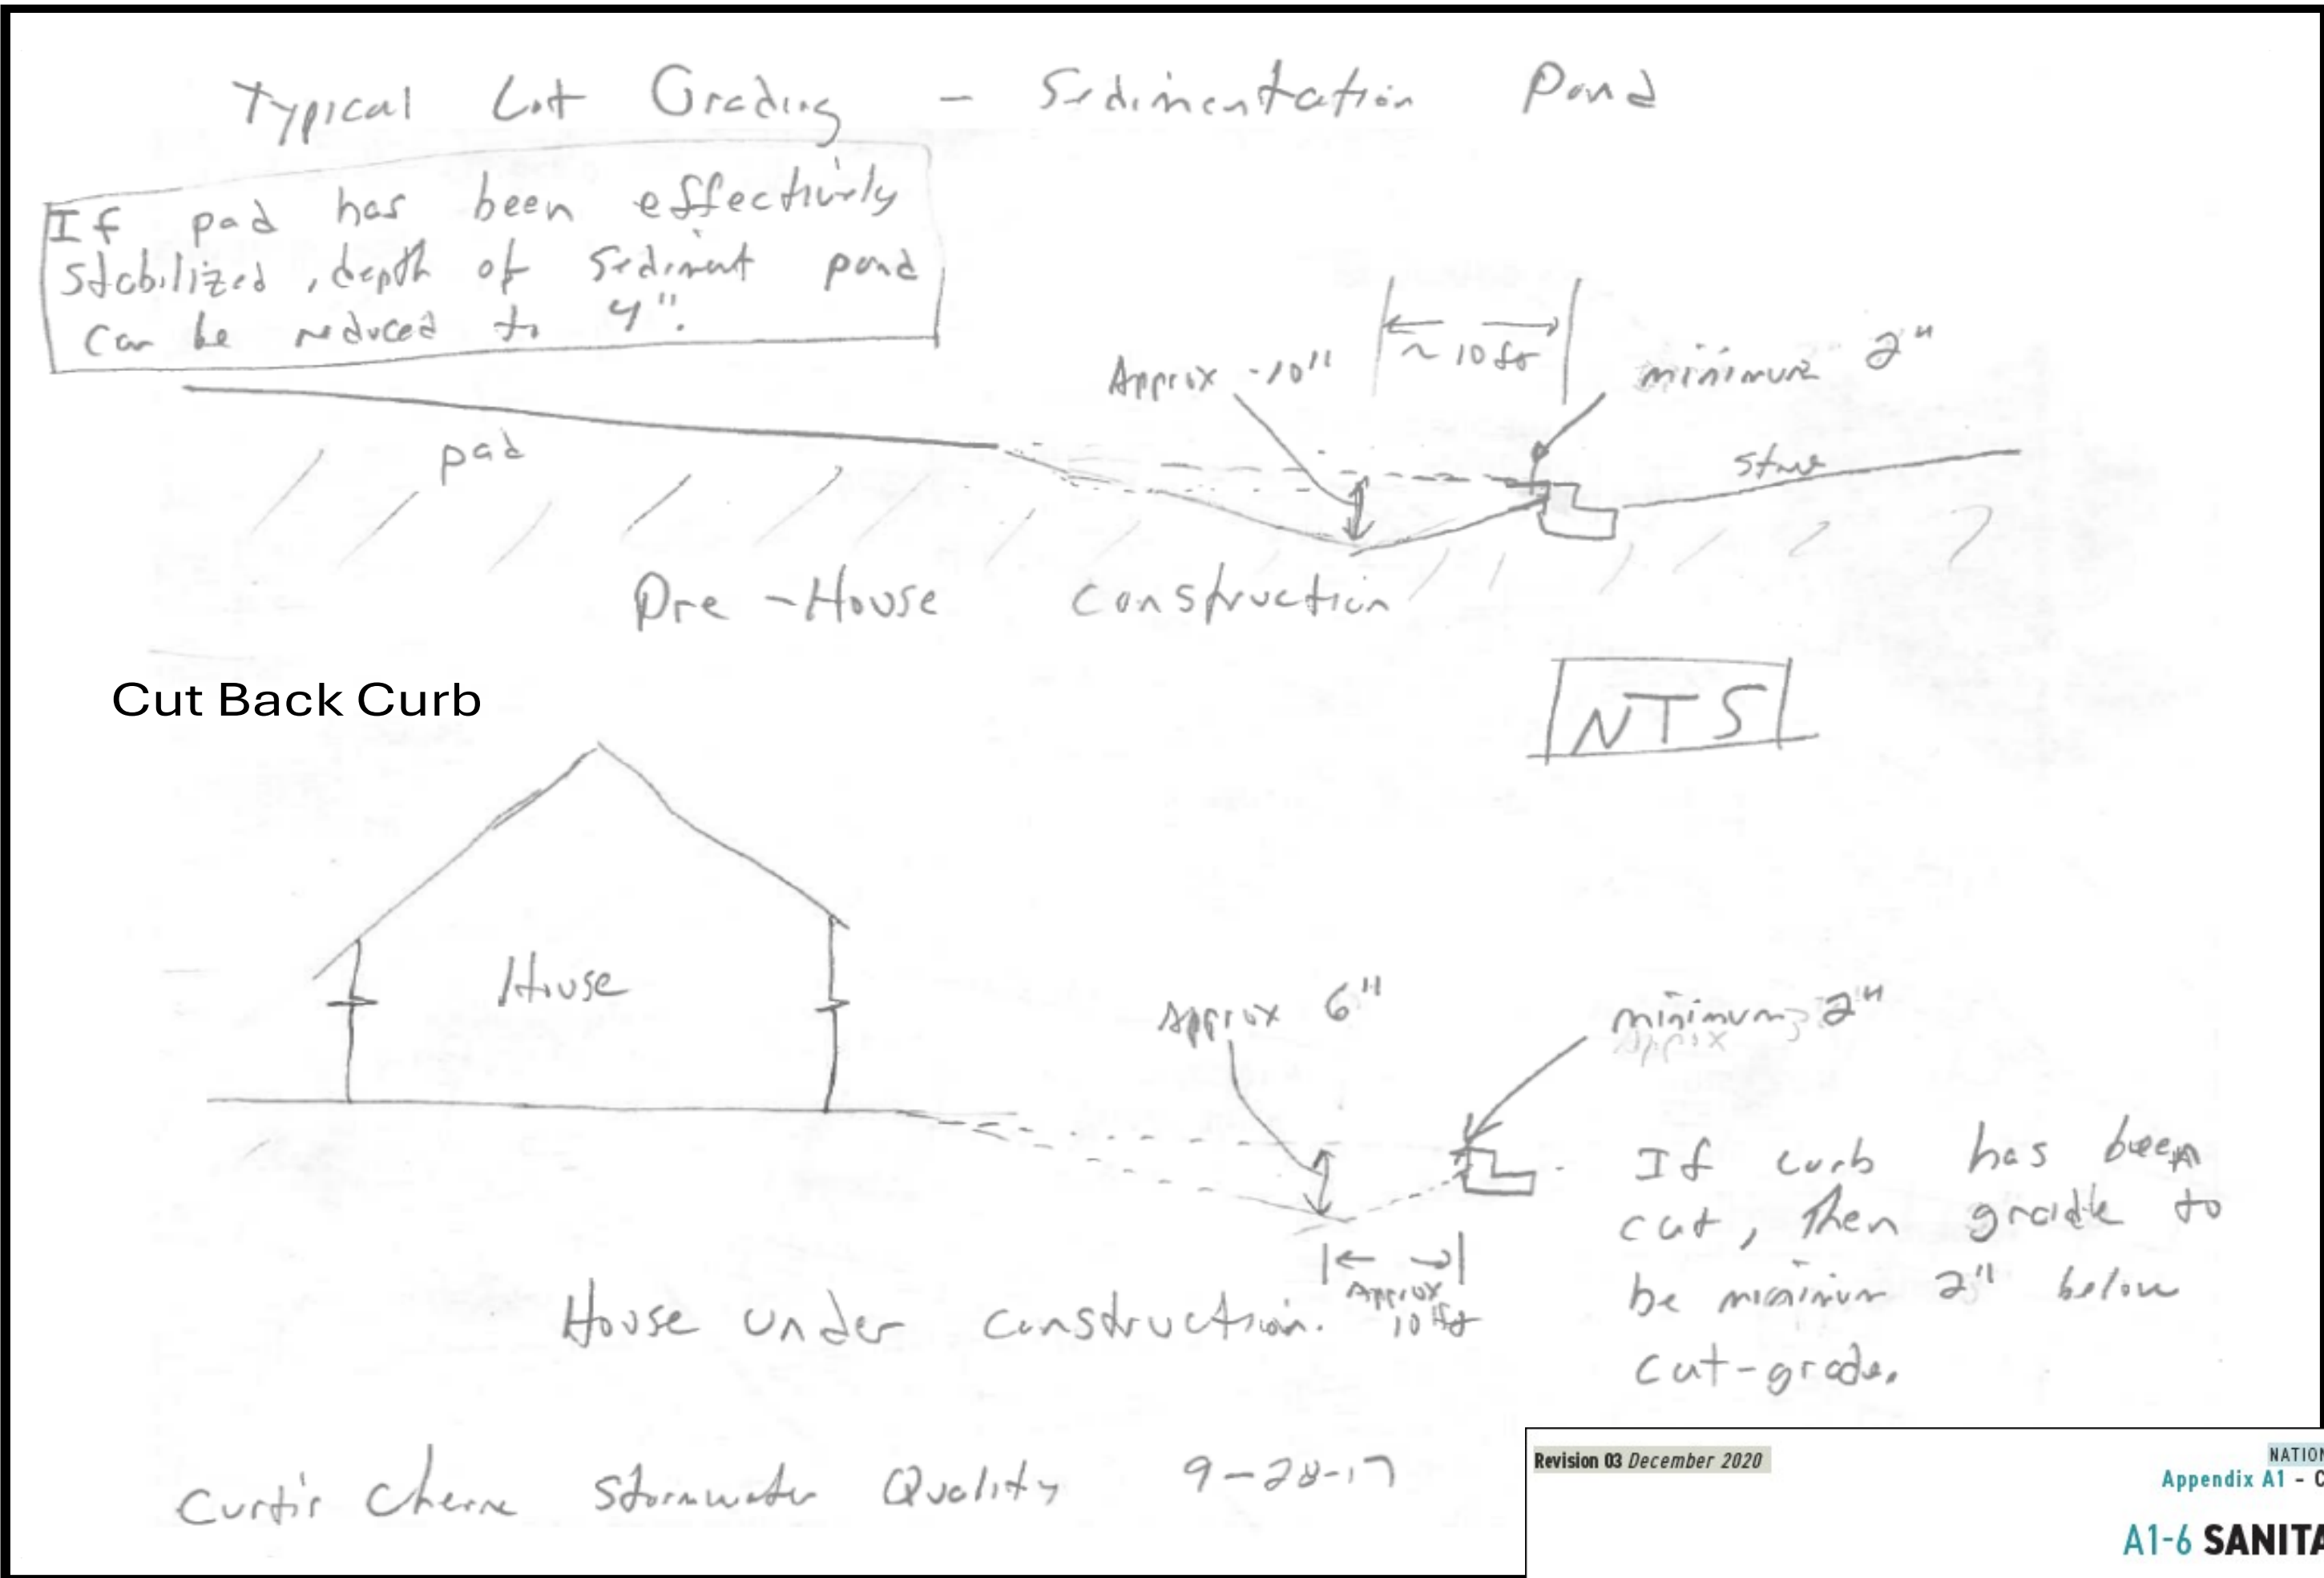 Typical Lot Grading - Sedimentation Pond
If pad has been effectively
stabilized, depth of sediment pond
can be reduced to 4".
Approx -10"
~ 10 ft
minimum 2"
pad
Pre - House Construction
NTS
Cut Back Curb
House
Approx 6"
minimum 2"
Approx
If curb has been
cut, then grade to
be minimum 2" below
cut-grade.
Approx
10 ft
House under construction.
Curtis Cherne Stormwater Quality 9-28-17
Revision 03 December 2020
NATION
Appendix A1 - C
A1-6 SANITA